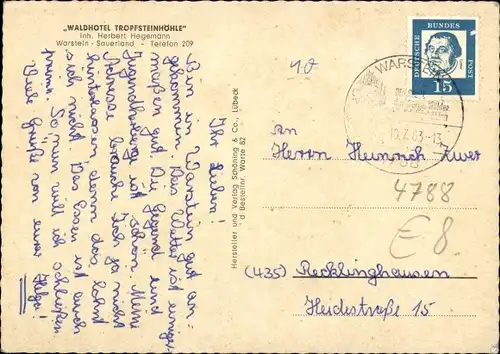 „WALDHOTEL TROPFSTEINHÖHLE"
Inh. Herbert Hegemann
Warstein - Sauerland • Telefon 209
Ihr Lieben!
Bin in Warstein gut an-
gekommen. Das Wetter ist einiger-
maßen gut. Die Gegend und
Jugendherberg ist schön. Meine
Adresse brauche ich ja nicht
hinterlassen, denn das lohnt
sich nicht. Das Essen ist auch
prima. So, nun will ich schließen
Viele Grüße von eurer Helga!
Hersteller und Verlag Schöning & Co., Lübeck
Bestellnr. Warte 82
DEUTSCHE BUNDESPOST
15
WARSTEIN
10.7.63-13
10
An
Herrn Heinrich
4788
€ 8
(435) Recklinghausen
Heidestraße 15